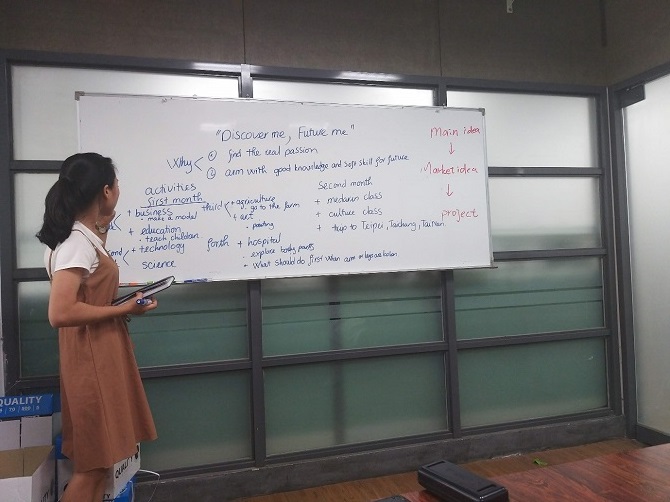 "Discover me, Future me"
Why
① find the real passion
② arm with good knowledge and soft skill for future
activities
first month
+ business
- make a model
+ education
- teach children
+ technology
science
third
+ agriculture
- go to the farm
+ art
- painting
forth
+ hospital
- explore body parts
+ What should do first when arm or legs are broken
Second month
+ mandarin class
+ culture class
+ trip to Teipei, Taichung, Tainan
Main idea
↓
Market idea
↓
project
QUALITY
QUALITY